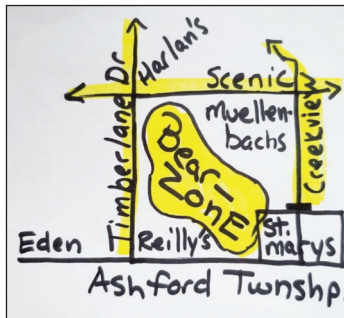 Timberlane Dr
Harlan's
Scenic
Muellen-
bachs
Creekview
Bear-
Zone
Eden
Reilly's
St.
marys
Ashford Twnshp.